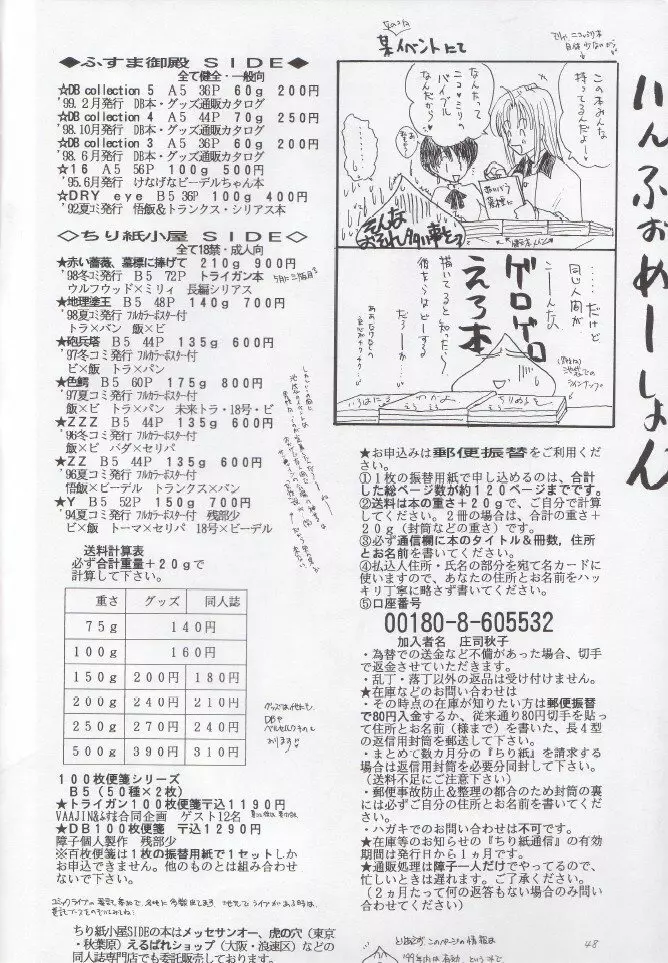 いんふぉめーしょん
某イベントにて
この本みんな
持ってるんだよー
なんたって
ニコ・ミリの
バイブル
なんだから
そんな
おそれ多い事を
……だけど
同じ人間が
こーんなの
ゲロゲロ
えろ本
描いてると知ったら
◆ふすま御殿 SIDE◆
全て健全・一般向
☆DB collection 5 A5 36P 60g 200円
'99.2月発行 DB本・グッズ通販カタログ
☆DB collection 4 A5 44P 70g 250円
'98.10月発行 DB本・グッズ通販カタログ
☆DB collection 3 A5 36P 60g 200円
'98.6月発行 DB本・グッズ通販カタログ
☆16 A5 56P 100g 500円
'95.6月発行 けなげなビーデルちゃん本
☆DRY eye B5 36P 100g 400円
'92夏コミ発行 悟飯&トランクス・シリアス本
◇ちり紙小屋 SIDE◇
全て18禁・成人向
★赤い薔薇、墓標に捧げて 210g 900円
'98冬コミ発行 B5 72P トライガン本
ウルフウッド×ミリィ 長編シリアス
★地理塗王 B5 48P 140g 700円
'98夏コミ発行 フルカラーポスター付
トラ×パン 飯×ビ
★砲兵塔 B5 44P 135g 600円
'97冬コミ発行 フルカラーポスター付
ビ×飯 トラ×パン
★色鰐 B5 60P 175g 800円
'97夏コミ発行 フルカラーポスター付
飯×ビ トラ×パン 未来トラ・18号・ビ
★ZZZ B5 44P 135g 600円
'96冬コミ発行 フルカラーポスター付
飯×ビ バダ×セリパ
★ZZ B5 44P 135g 600円
'96夏コミ発行 フルカラーポスター付
悟飯×ビーデル トランクス×パン
★Y B5 52P 150g 700円
'94夏コミ発行 フルカラーポスター付 残部少
ビ×飯 トーマ×セリパ 18号×ビーデル
送料計算表
必ず合計重量+20gで
計算して下さい。
重さ グッズ 同人誌
75g 140円
100g 160円
150g 200円 180円
200g 240円 210円
250g 270円 240円
500g 390円 310円
100枚便箋シリーズ
B5(50種×2枚)
★トライガン100枚便箋〒込1190円
VAAJIN&ふすま合同企画 ゲスト12名
★DB100枚便箋 〒込1290円
障子個人製作 残部少
※百枚便箋は1枚の振替用紙で1セットしか
お申込できません。他のものとは組み合わせ
ないで下さい。
ちり紙小屋SIDEの本はメッセサンオー、虎の穴(東京
・秋葉原)えるぱれショップ(大阪・浪速区)などの
同人誌専門店でも委託販売しております。
★お申込みは郵便振替をご利用くだ
さい。
①1枚の振替用紙で申し込めるのは、合計
した総ページ数が約120ページまでです。
②送料は本の重さ+20gで、ご自分で計算
してください。2冊の場合は、合計の重さ+
20g(封筒などの重さ)です。
③必ず通信欄に本のタイトル&冊数、住所
とお名前を書いてください。
④払込人住所・氏名の部分を宛て名カードに
使いますので、あなたの住所とお名前をハッ
キリ丁寧に略さず書いてください。
⑤口座番号
00180-8-605532
加入者名 庄司秋子
・為替での送金など不備があった場合、切手
で返金させていただきます。
・乱丁・落丁以外の返品は受け付けません。
★在庫などのお問い合わせは
・その時点の在庫が知りたい方は郵便振替
で80円入金するか、従来通り80円切手を貼っ
て住所とお名前(様まで)を書いた、長4型
の返信用封筒を郵送して下さい。
・まとめて数カ月分の『ちり紙』を請求する
場合は返信用封筒を必要分同封して下さい。
(送料不足にご注意下さい)
・郵便事故防止&整理の都合のため封筒の裏
には必ずご自分の住所とお名前を書いてくだ
さい。
・ハガキでのお問い合わせは不可です。
★在庫等のお知らせの『ちり紙通信』の有効
期間は発行日から1ヵ月です。
★通販処理は障子一人だけでやってるので、
忙しいときは遅れます。ご了承ください。
(2ヵ月たって何の返答もない場合のみ問い
合わせてください)
48